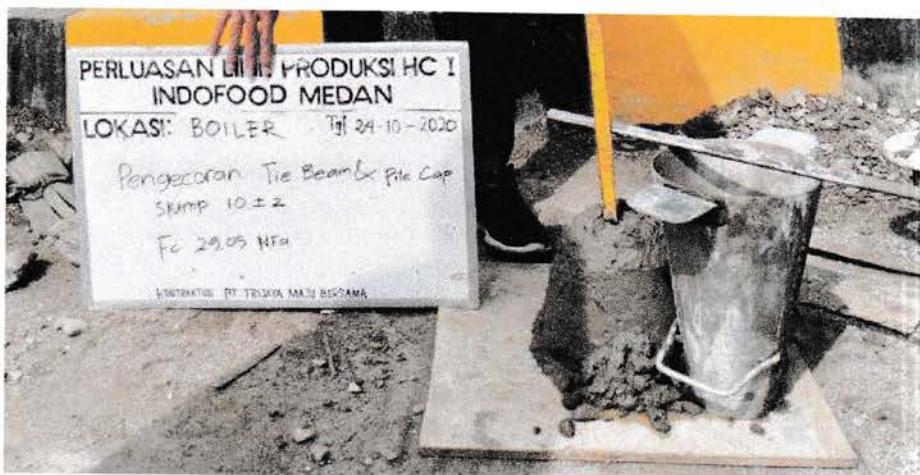 PERLUASAN LINE PRODUKSI HC I
INDOFOOD MEDAN
LOKASI: BOILER Tgl 24-10-2020
Pengecoran Tie Beam & Pile Cap
Slump 10 ± 2
Fc 29.05 MPa
KONTRAKTOR PT. TRIJAYA MAJU BERSAMA